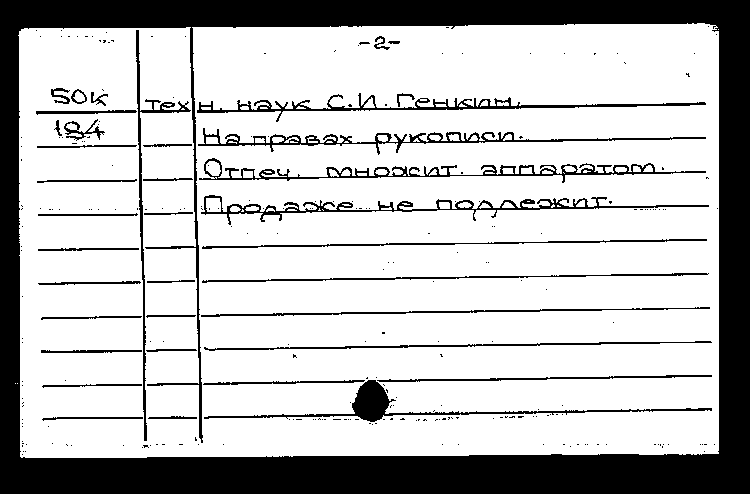 -2-
50к техн. наук С.И. Генкин.
184 На правах рукописи.
Отпеч. множит. аппаратом.
Продаже не подлежит.